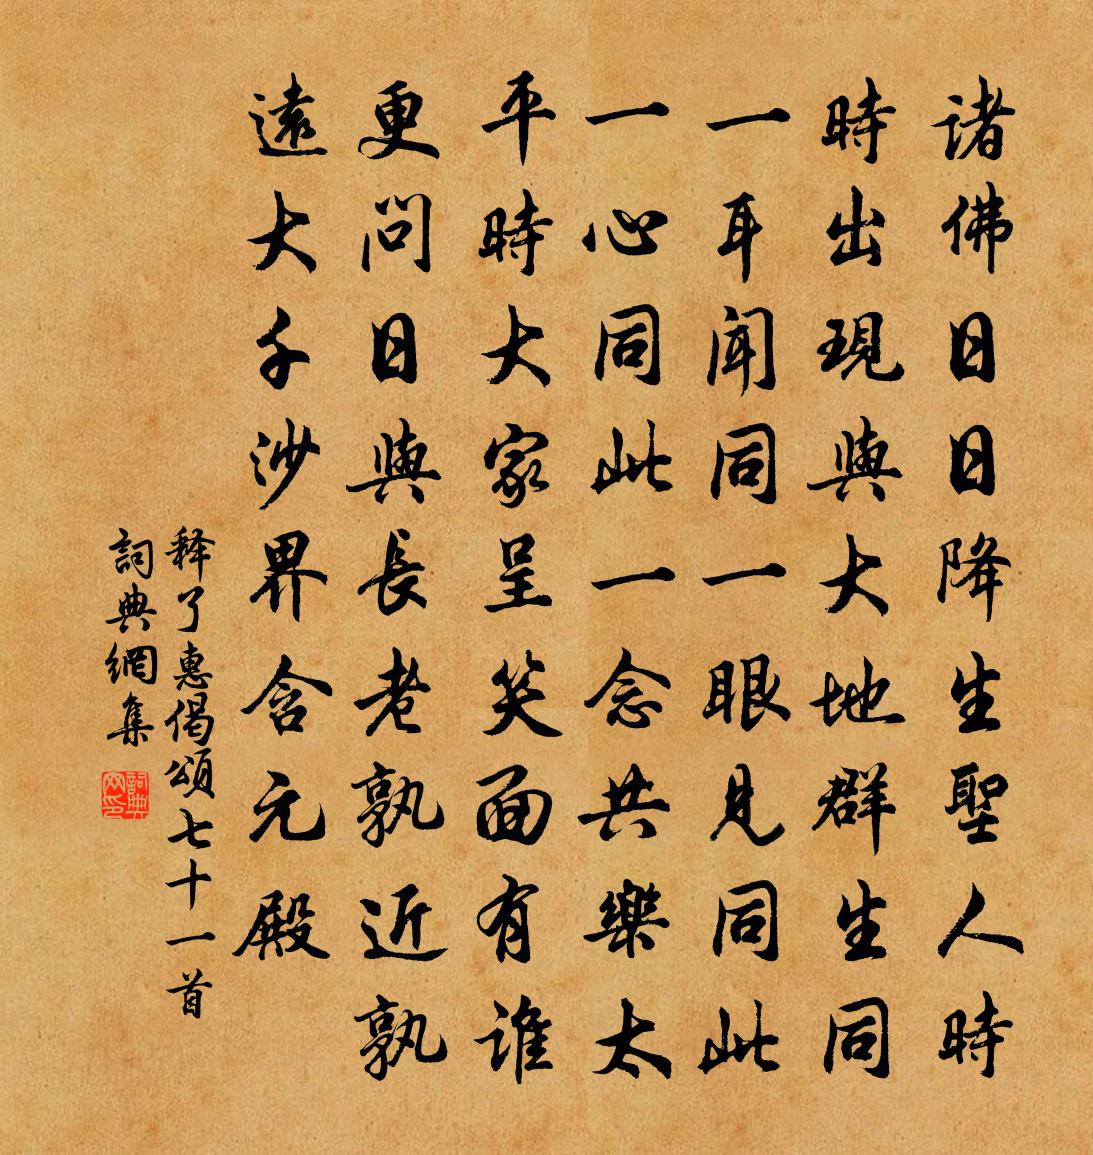 諸佛日日降生聖人時
時出現與大地群生同
一耳聞同一眼見同此
一心同此一念共樂太
平時大家呈笑面有誰
更問日與長老孰近孰
遠大千沙界含元殿
释了惠偈頌七十一首
詞典網集
詞典网印